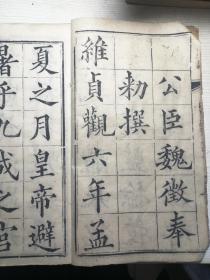 公臣魏徵奉
勑撰
維貞觀六年孟
夏之月皇帝避
暑乎九成之宮